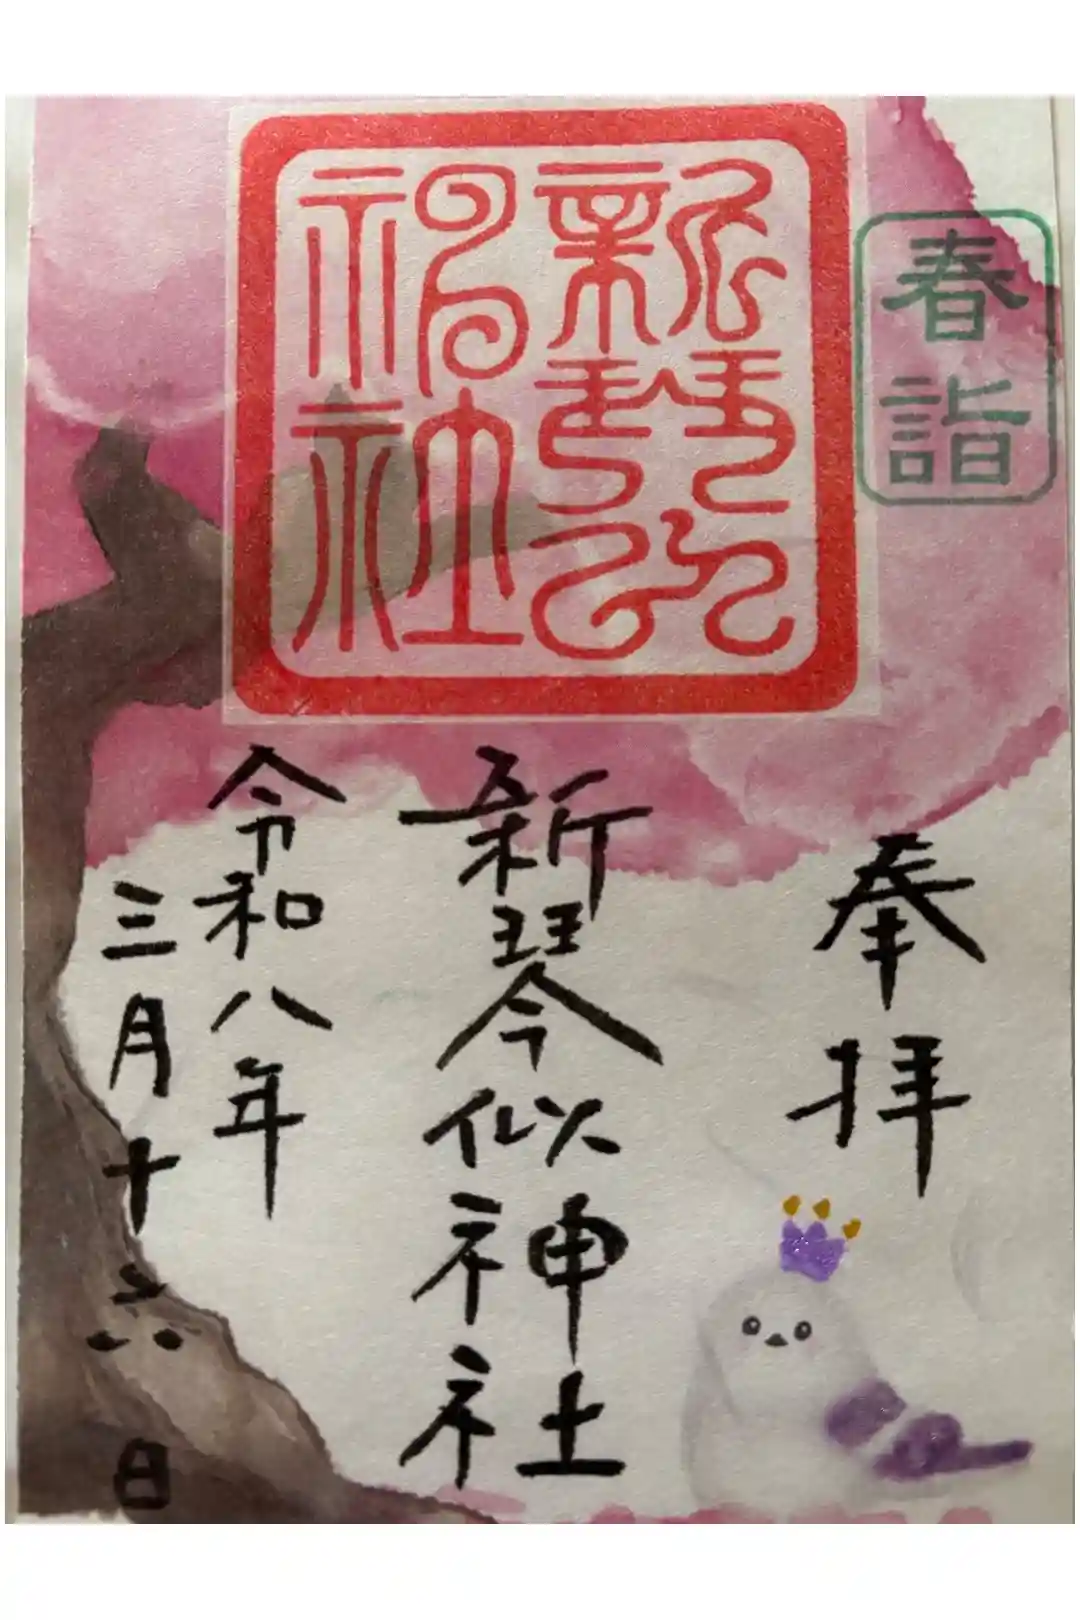 春詣
奉拝
新琴似
神社
新琴似神社
令和八年
三月十六日